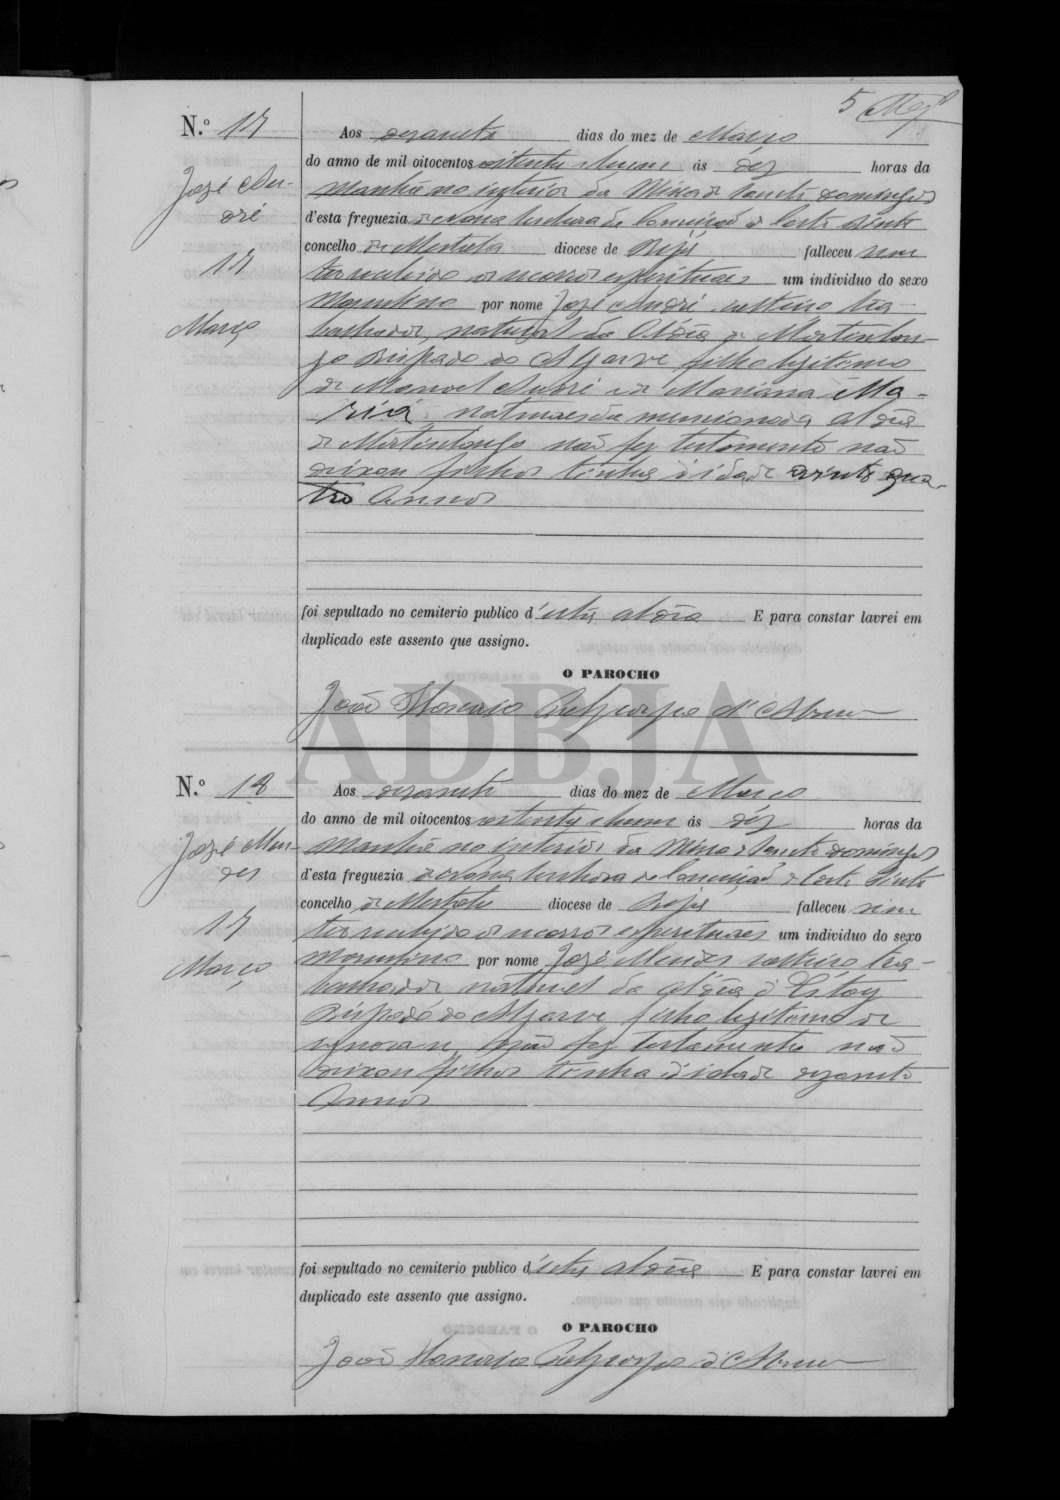 5
N.º 17
José An-
dré
17
Março
Aos dezasete dias do mez de Março
do anno de mil oitocentos oitenta e hum ás déz horas da
Manhã no interior da Mina de Sancto Domingos
d'esta freguezia de Nossa Senhora da Conceição de Corte Pinto
concelho de Mertola diocese de Beja falleceu sem
ter recebido os socorros espirituaes um individuo do sexo
Masculino por nome José André, solteiro tra-
balhador, natural da Aldêa de Martinlon-
go Bispado do Algarve filho legitimo
de Manoel André e de Mariana Ma-
ria, naturaes da mencionada aldêa
de Martinlongo não fez testamento não
deixou filhos tinha d'idade vinte qua-
tro Annos
foi sepultado no cemiterio publico d'esta aldêa E para constar lavrei em
duplicado este assento que assigno.
O PAROCHO
João d'Abreu
ADBJA
N.º 18
José Men-
des
17
Março
Aos dezasete dias do mez de Março
do anno de mil oitocentos oitenta e hum ás déz horas da
Manhã no interior da Mina de Sancto Domingos
d'esta freguezia de Nossa Senhora da Conceição de Corte Pinto
concelho de Mertola diocese de Beja falleceu sem
ter recebido os socorros espirituaes um individuo do sexo
Masculino por nome José Mendes solteiro tra-
balhador natural da aldêa d'Estoy
Bispado do Algarve filho legitimo de
não fez testamento não
deixou filhos tinha d'idade dezasete
Annos
foi sepultado no cemiterio publico d'esta aldêa E para constar lavrei em
duplicado este assento que assigno.
O PAROCHO
João d'Abreu